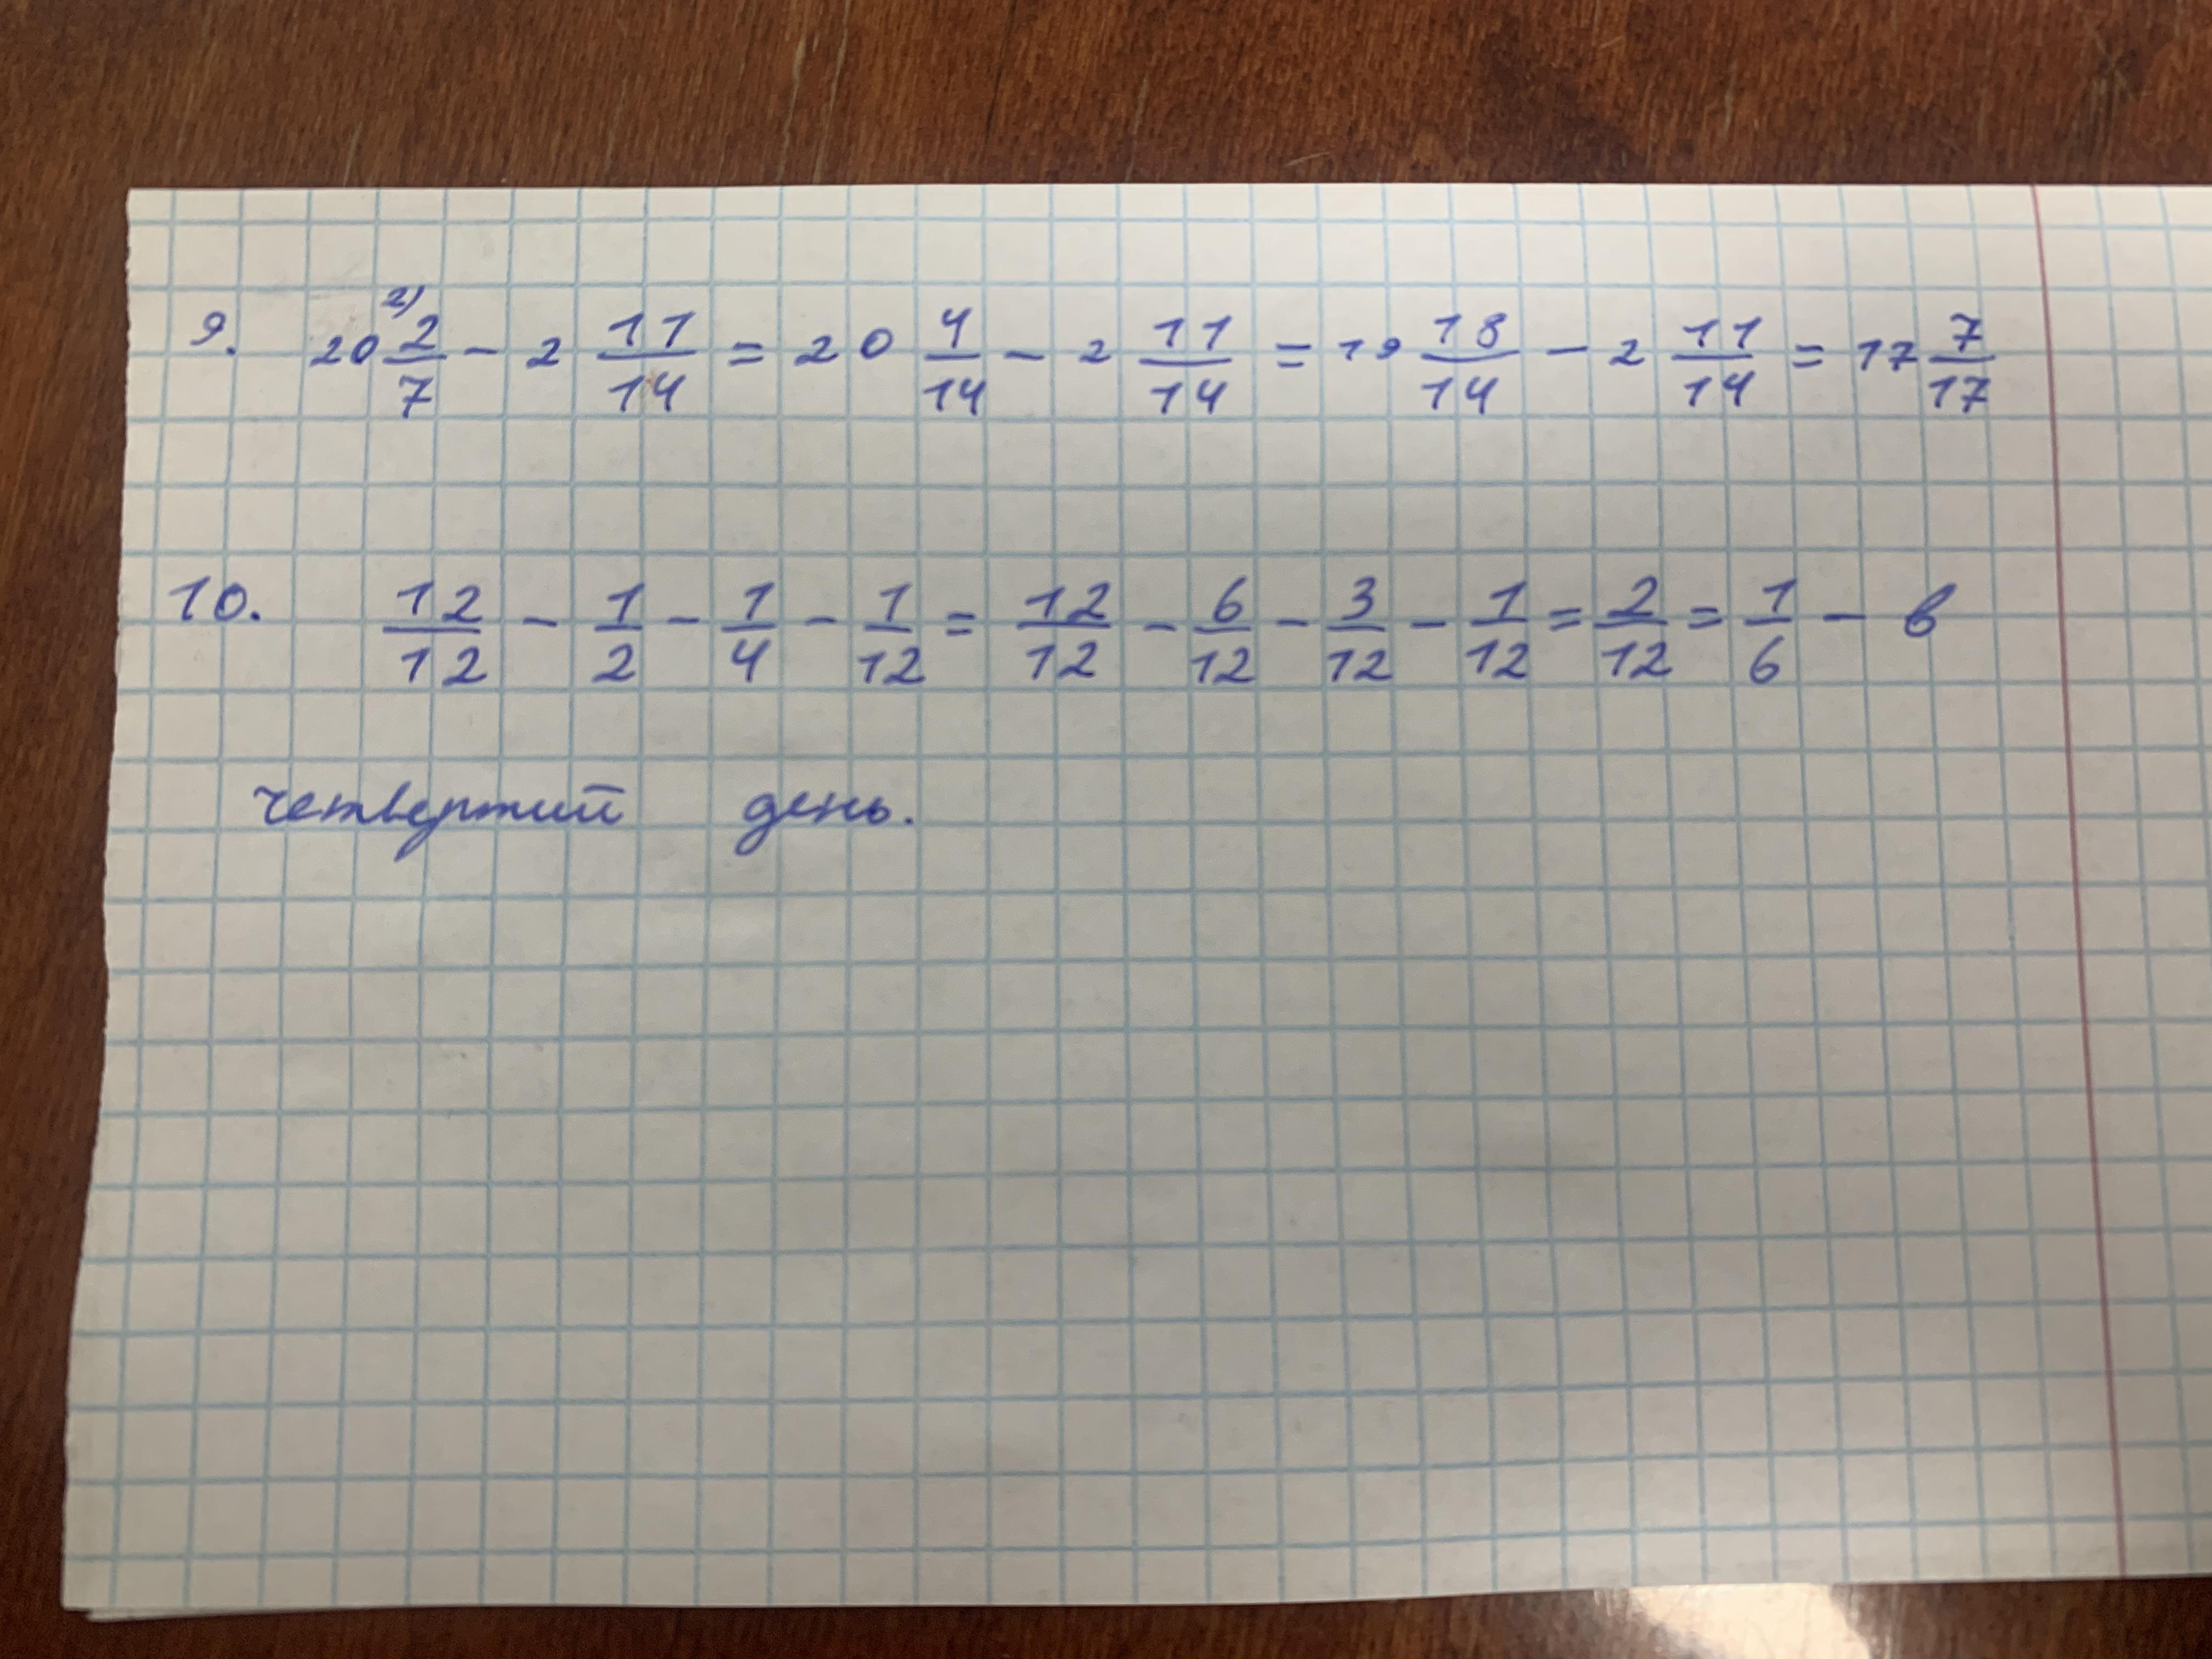 9. 20 2) 2/7 - 2 11/14 = 20 4/14 - 2 11/14 = 19 18/14 - 2 11/14 = 17 7/17
10. 12/12 - 1/2 - 1/4 - 1/12 = 12/12 - 6/12 - 3/12 - 1/12 = 2/12 = 1/6 - в
четвертий день.